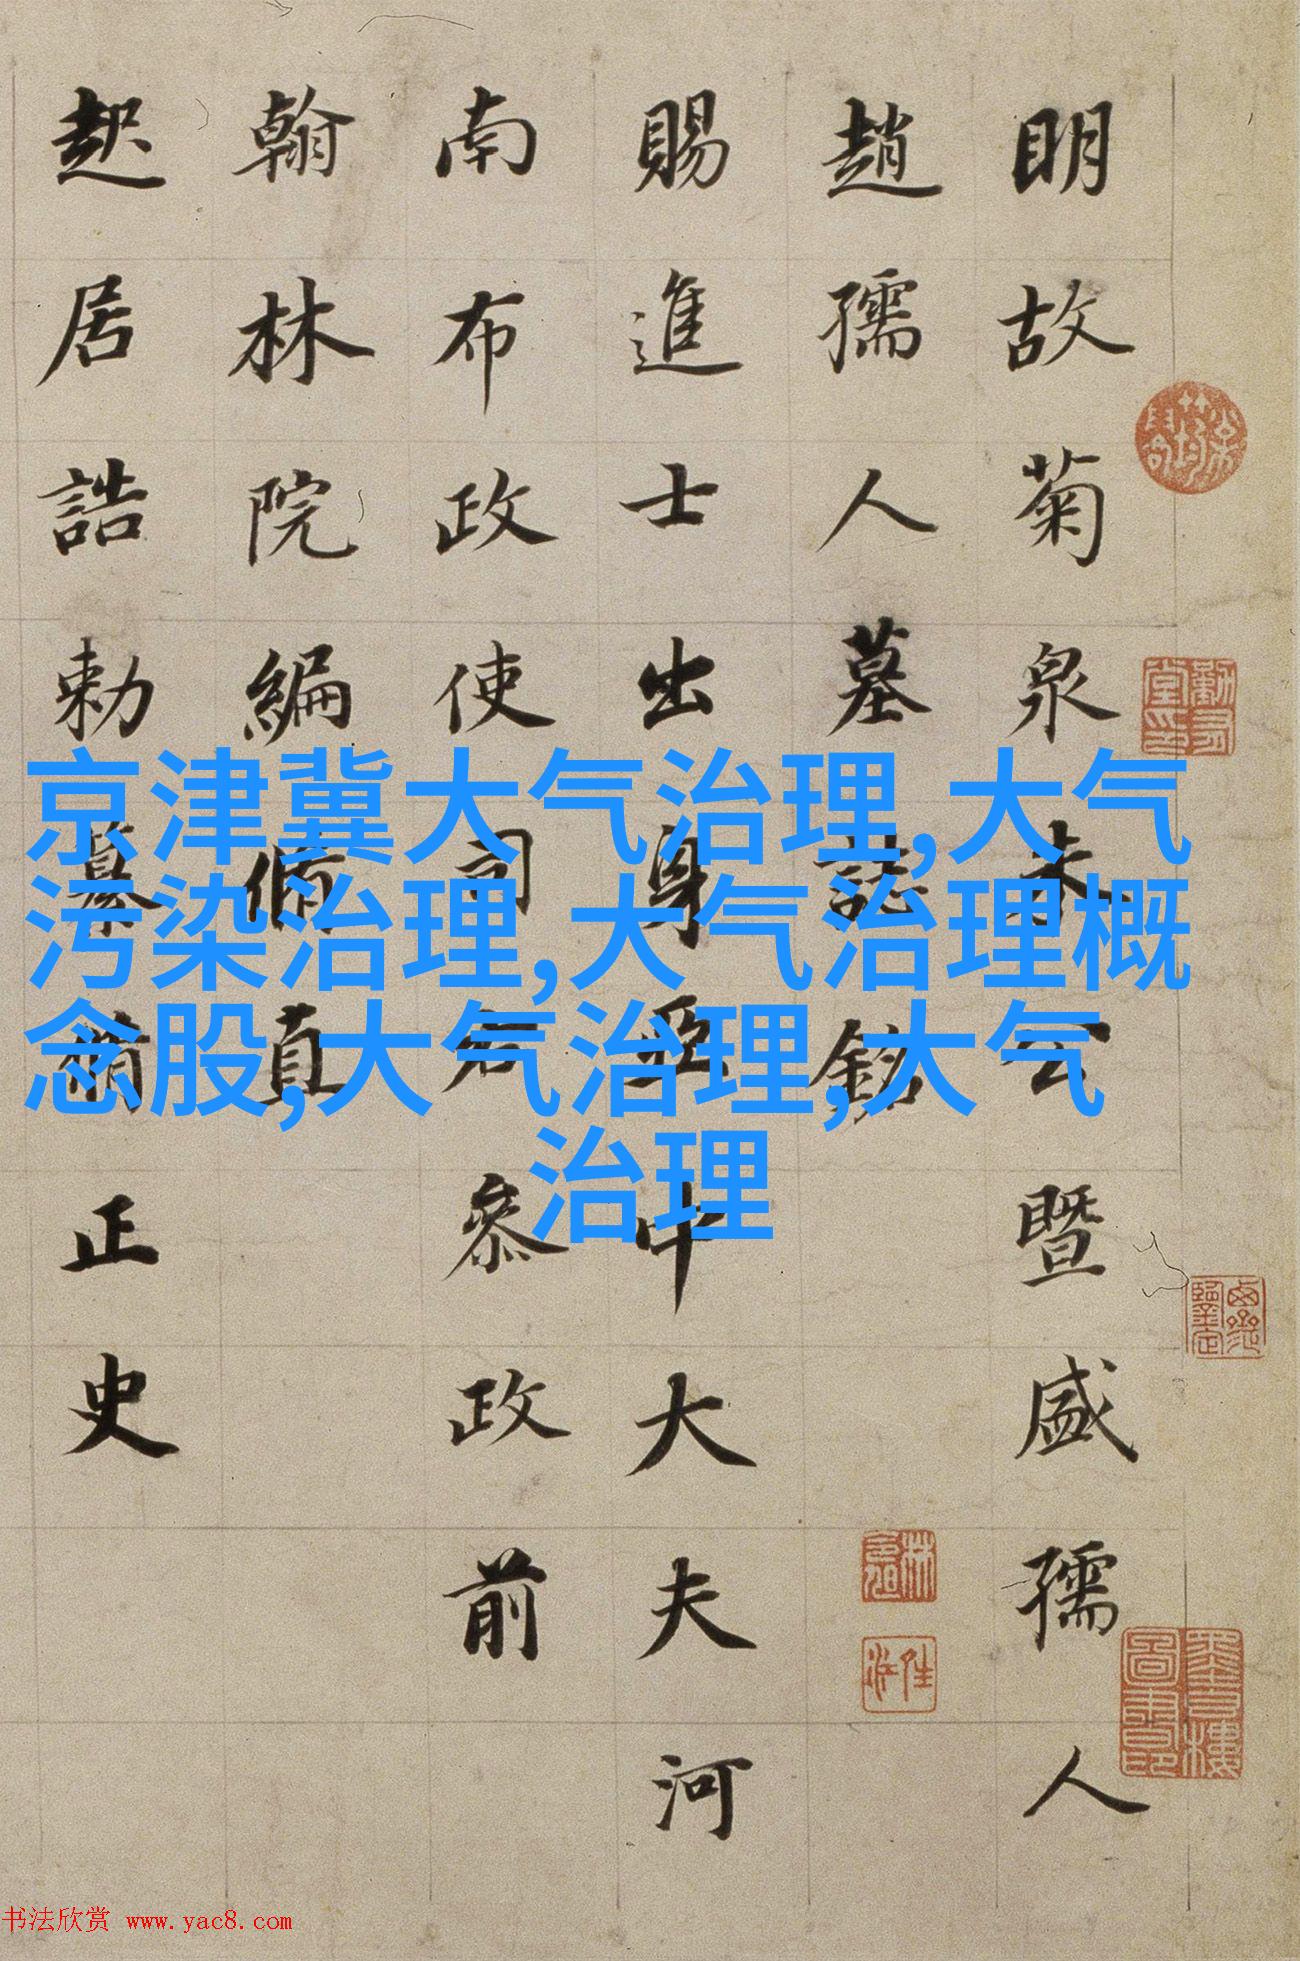 明故菊泉朱公暨盛孺人
趙孺人墓誌銘
賜進士出身亞中大夫河
南布政使司右參政前
翰林院編脩直
起居誥勅纂脩正史
京津冀大气治理,大气
污染治理,大气治理概
念股,大气治理,大气
治理
书法欣赏 www.yac8.com